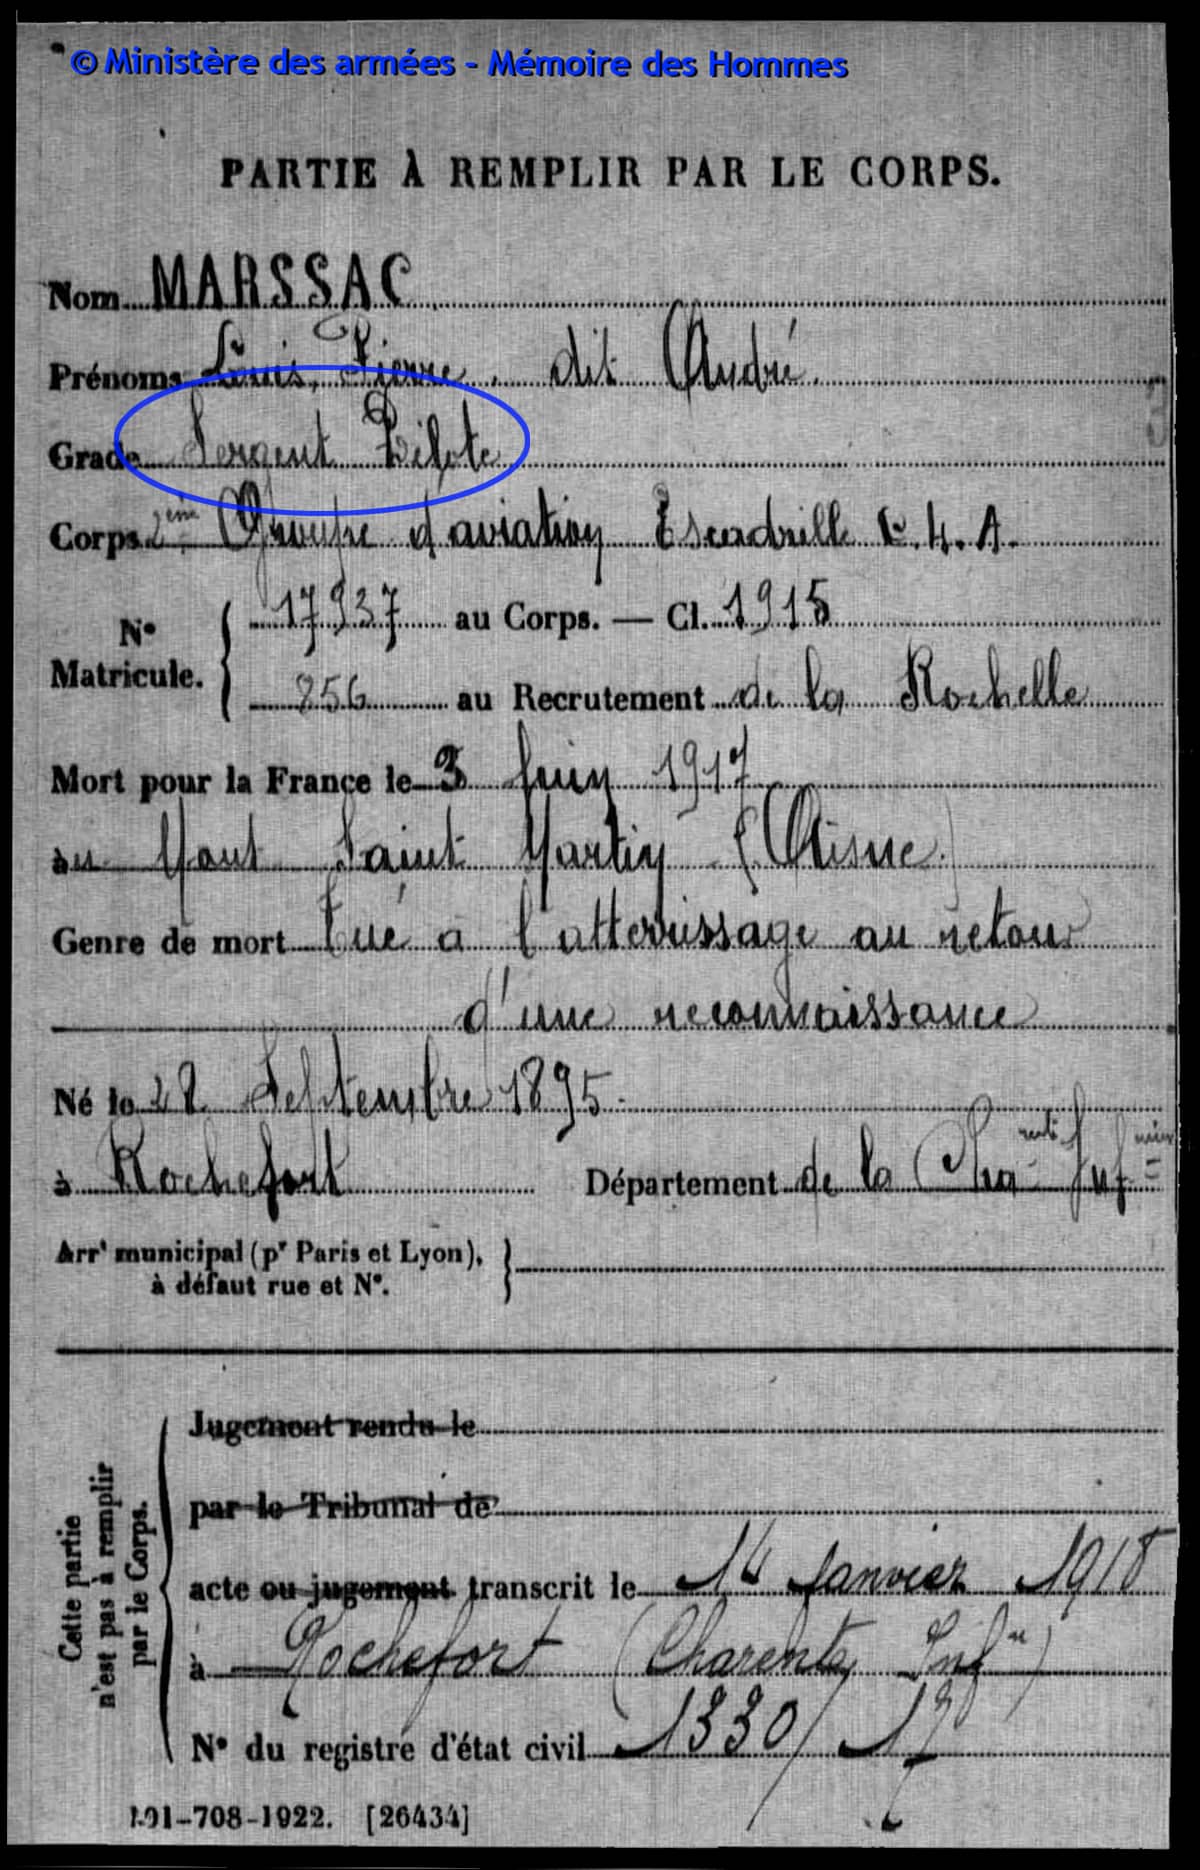 © Ministère des armées - Mémoire des Hommes
PARTIE À REMPLIR PAR LE CORPS.
Nom MARSSAC
Prénoms Louis, Pierre, dit André.
Grade Sergent Pilote
Corps 2ème Groupe d'aviation Escadrille C.4.A.
No Matricule. { 17937 au Corps. — Cl. 1915
856 au Recrutement de la Rochelle
Mort pour la France le 3 Juin 1917
au Mont Saint Martin (Aisne.)
Genre de mort Tué à l'atterrissage au retour
d'une reconnaissance
Né le 28 Septembre 1895.
à Rochefort Département de la Charente Inf
Arrt municipal (pr Paris et Lyon),
à défaut rue et No.
Cette partie n'est pas à remplir par le Corps.
Jugement rendu le
par le Tribunal de
acte ou jugement transcrit le 14 Janvier 1918
à Rochefort (Charente Infre)
No du registre d'état civil 1330/17
101-708-1922. [26434]